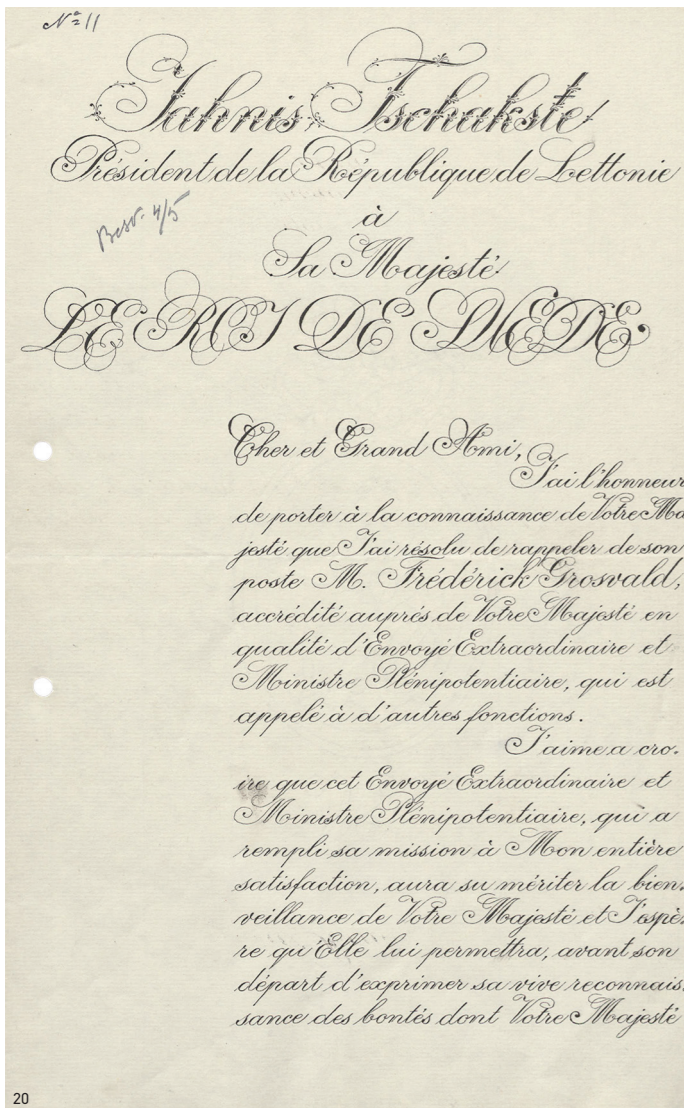 Nº 11
Jahnis Tschakste
Président de la République de Lettonie
Besv. 4/5
à
Sa Majesté
LE ROI DE SUÈDE.
Cher et Grand Ami,
J'ai l'honneur
de porter à la connaissance de Votre Ma
jesté que J'ai résolu de rappeler de son
poste M. Frédérick Grosvald,
accrédité auprés de Votre Majesté en
qualité d'Envoyé Extraordinaire et
Ministre Plénipotentiaire, qui est
appelé à d'autres fonctions.
J'aime a cro-
ire que cet Envoyé Extraordinaire et
Ministre Plénipotentiaire, qui a
rempli sa mission à Mon entière
satisfaction, aura su mériter la bien-
veillance de Votre Majesté et J'espè-
re qu'Elle lui permettra, avant son
départ d'exprimer sa vive reconnais-
sance des bontés dont Votre Majesté
20